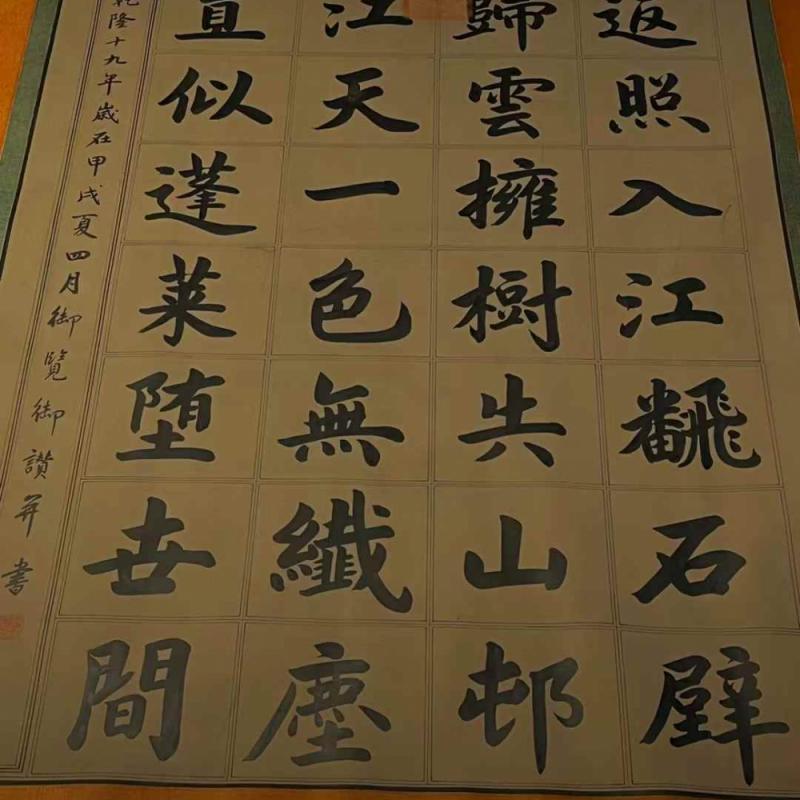 返照入江飜石壁
歸雲擁樹失山邨
江天一色無纖塵
直似蓬莱堕世間
乾隆十九年歲在甲戌夏四月御覽御讚并書